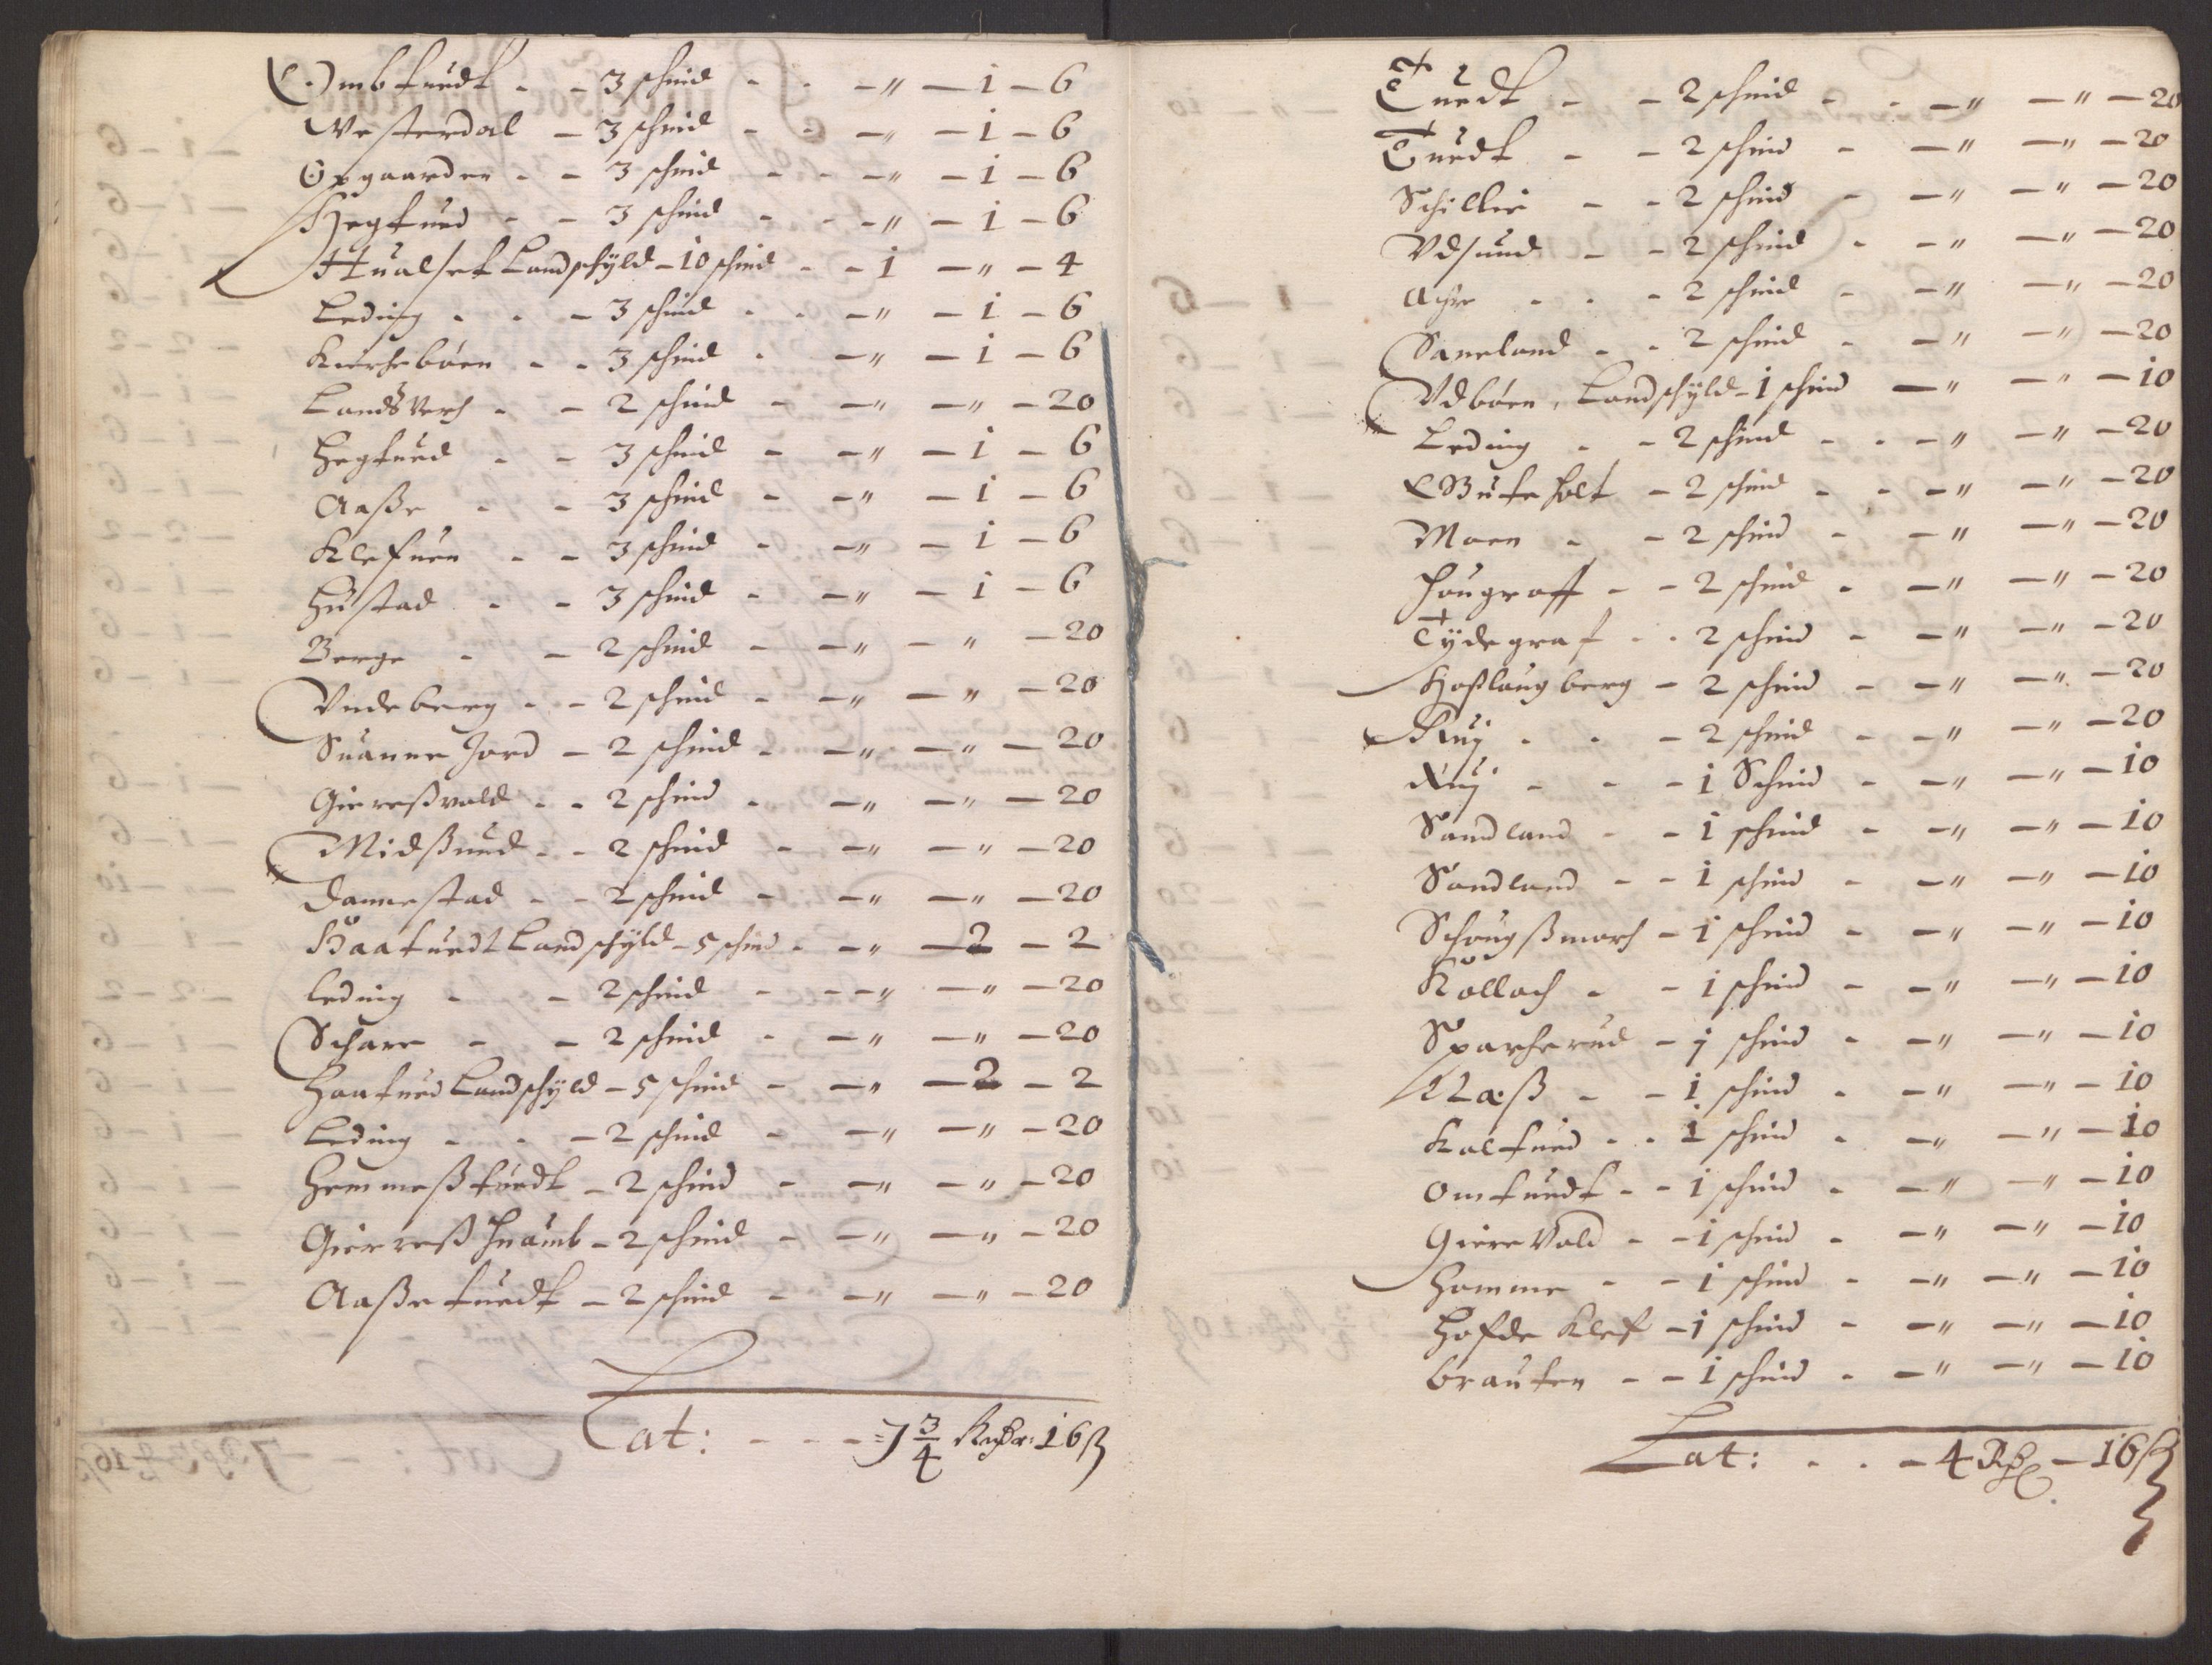 Ombtuedt - - 3 schind - - - " - 1 - 6
Westerdal - 3 schind - - - " - 1 - 6
Opgaarden - - 3 schind - - - " - 1 - 6
Hegtued - - 3 schind - - - " - 1 - 6
Hualset Landschyld - 10 schind - - 1 - " - 4
Leding - - - 3 schind - - - " - 1 - 6
Kirchebøen - - 3 schind - - " - 1 - 6
Landsverch - - 2 schind - - " - " - 20
Hegtued - - 3 schind - - " - 1 - 6
Aasße - - 3 schind - - " - 1 - 6
Klefuen - - 3 schind - - " - 1 - 6
Hustad - - 3 schind - - " - 1 - 6
Berge - - 2 schind - - " - " - 20
Vndeberg - - 2 schind - - " - " - 20
Suanne Jord - 2 schind - - " - " - 20
Giereßvald - - 2 schind - - " - " - 20
Midßund - - 2 schind - - " - " - 20
Dannestad - - 2 schind - - " - " - 20
Haatuedt Landschyld - 5 schind - - " - 2 - 2
Leding - - 2 schind - - - " - " - 20
Schare - - 2 schind - - " - " - 20
Haatued Landschyld - 5 schind - - " - 2 - 2
Leding - - - 2 schind - - " - " - 20
Hemmeßtuedt - 2 schind - - " - " - 20
Giereß huamb - 2 schind - - " - " - 20
Aaßetuedt - 2 schind - - " - " - 20
Lat: - - - 7 3/4 16 ß
Tuedt - - 2 schind - - - " - " - 20
Tuedt - - 2 schind - - " - " - 20
Schillie - - 2 schind - - " - " - 20
Vdsund - - 2 schind - - " - " - 20
- - - 2 schind - - " - " - 20
Saneland - - 2 schind - - " - " - 20
Vdbøen, Landschyld - 1 schind - " - " - 10
Leding - - 2 schind - - - " - " - 20
Buteholt - 2 schind - - - " - " - 20
Moen - - 2 schind - - " - " - 20
Hougroff - - 2 schind - - " - " - 20
Tydegraf - - 2 schind - - " - " - 20
Hoßlaugberg - 2 schind - - " - " - 20
Ruj - - - 2 schind - - " - " - 20
Ruj - - - 1 Schind - - " - " - 10
Sandland - - 1 schind - - " - " - 10
Sandland - - 1 schind - - " - " - 10
Schougßmarch - 1 schind - - " - " - 10
Kollach - - 1 schind - - " - " - 10
Sparcherud - 1 schind - - " - " - 10
Næß - - 1 schind - - " - " - 10
Kaltued - - 1 schind - - " - " - 10
Omtuedt - - 1 schind - - " - " - 10
Giere Vald - - 1 schind - - " - " - 10
Homme - - 1 schind - - " - " - 10
Hofde Klef - 1 schind - - " - " - 10
Brauten - - 1 schind - - " - " - 10
Lat: - - - 4 - 16 ß